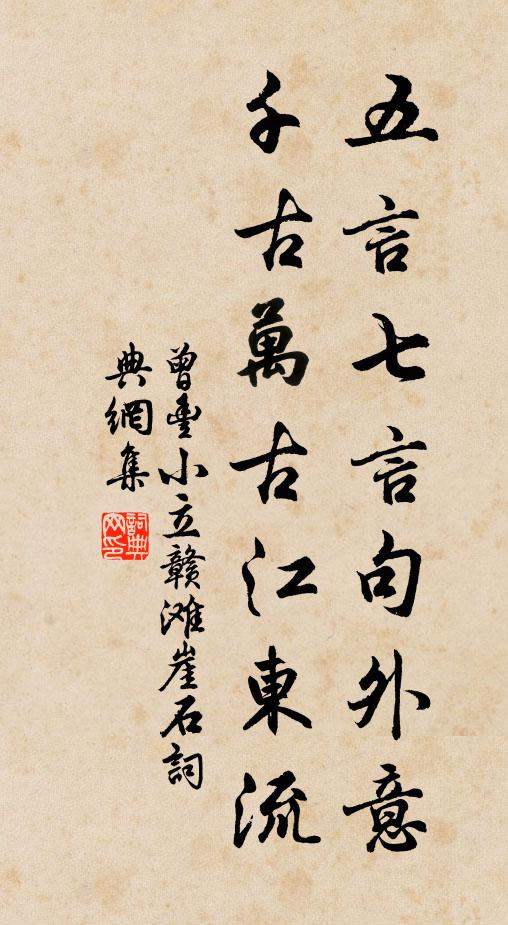 五言七言句外意
千古萬古江東流
曾豊小立赣滩崖石詞
典網集
詞典
网印